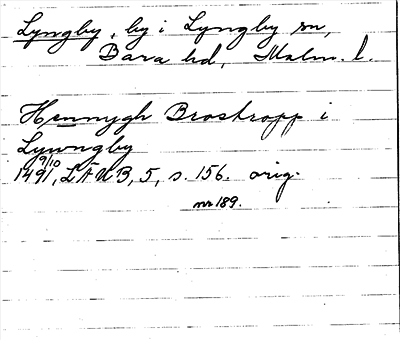 Lyngby, by i Lyngby sn,
Bara hd, Malm. l.
Hennygh Brostropp i
Lywngby
9/10
1491, LÄUB, 5, s. 156. orig.
nr 189.